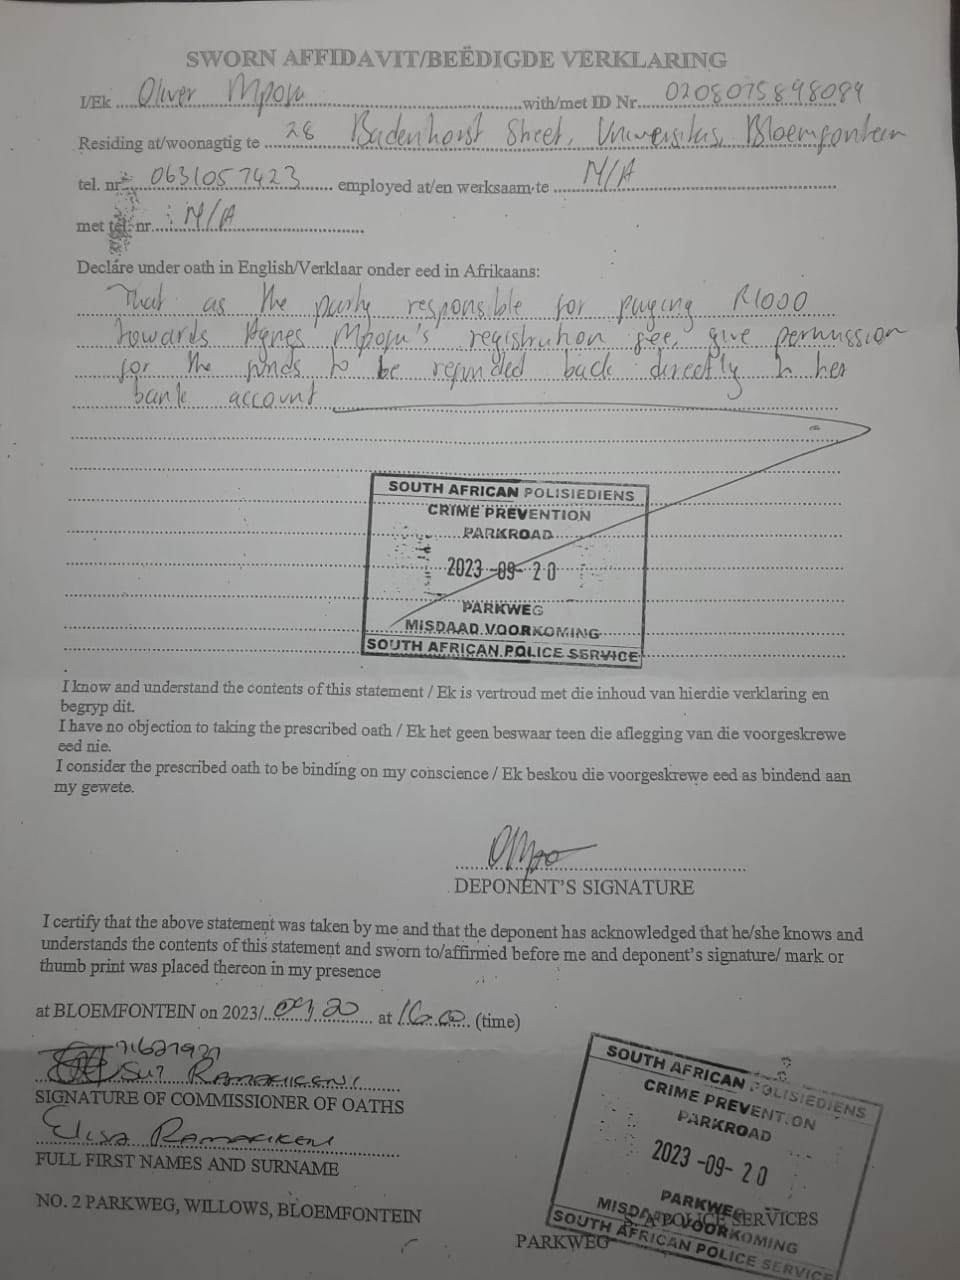 SWORN AFFIDAVIT/BEËDIGDE VERKLARING
I/Ek Oliver Mpofu with/met ID Nr. 0208075898089
Residing at/woonagtig te 28 Badenhorst Street, Universitas, Bloemfontein
tel. nr. 0631057423 employed at/en werksaam te N/A
met tel. nr. N/A
Declare under oath in English/Verklaar onder eed in Afrikaans:
That as the party responsible for paying R1000
towards Agnes Mpofu's registration fee, give permission
for the funds to be refunded back directly to her
bank account
SOUTH AFRICAN POLISIEDIENS
CRIME PREVENTION
PARKROAD
2023-09-20
PARKWEG
MISDAAD VOORKOMING
SOUTH AFRICAN POLICE SERVICE
I know and understand the contents of this statement / Ek is vertroud met die inhoud van hierdie verklaring en
begryp dit.
I have no objection to taking the prescribed oath / Ek het geen beswaar teen die aflegging van die voorgeskrewe
eed nie.
I consider the prescribed oath to be binding on my conscience / Ek beskou die voorgeskrewe eed as bindend aan
my gewete.
DEPONENT'S SIGNATURE
I certify that the above statement was taken by me and that the deponent has acknowledged that he/she knows and
understands the contents of this statement and sworn to/affirmed before me and deponent's signature/ mark or
thumb print was placed thereon in my presence
at BLOEMFONTEIN on 2023/ 09.20 at 16:00 (time)
SIGNATURE OF COMMISSIONER OF OATHS
Elisa
FULL FIRST NAMES AND SURNAME
NO. 2 PARKWEG, WILLOWS, BLOEMFONTEIN
SOUTH AFRICAN POLISIEDIENS
CRIME PREVENTION
PARKROAD
2023-09-20
PARKWEG
MISDAAD VOORKOMING
SOUTH AFRICAN POLICE SERVICE
POLICE SERVICES
PARKWEG